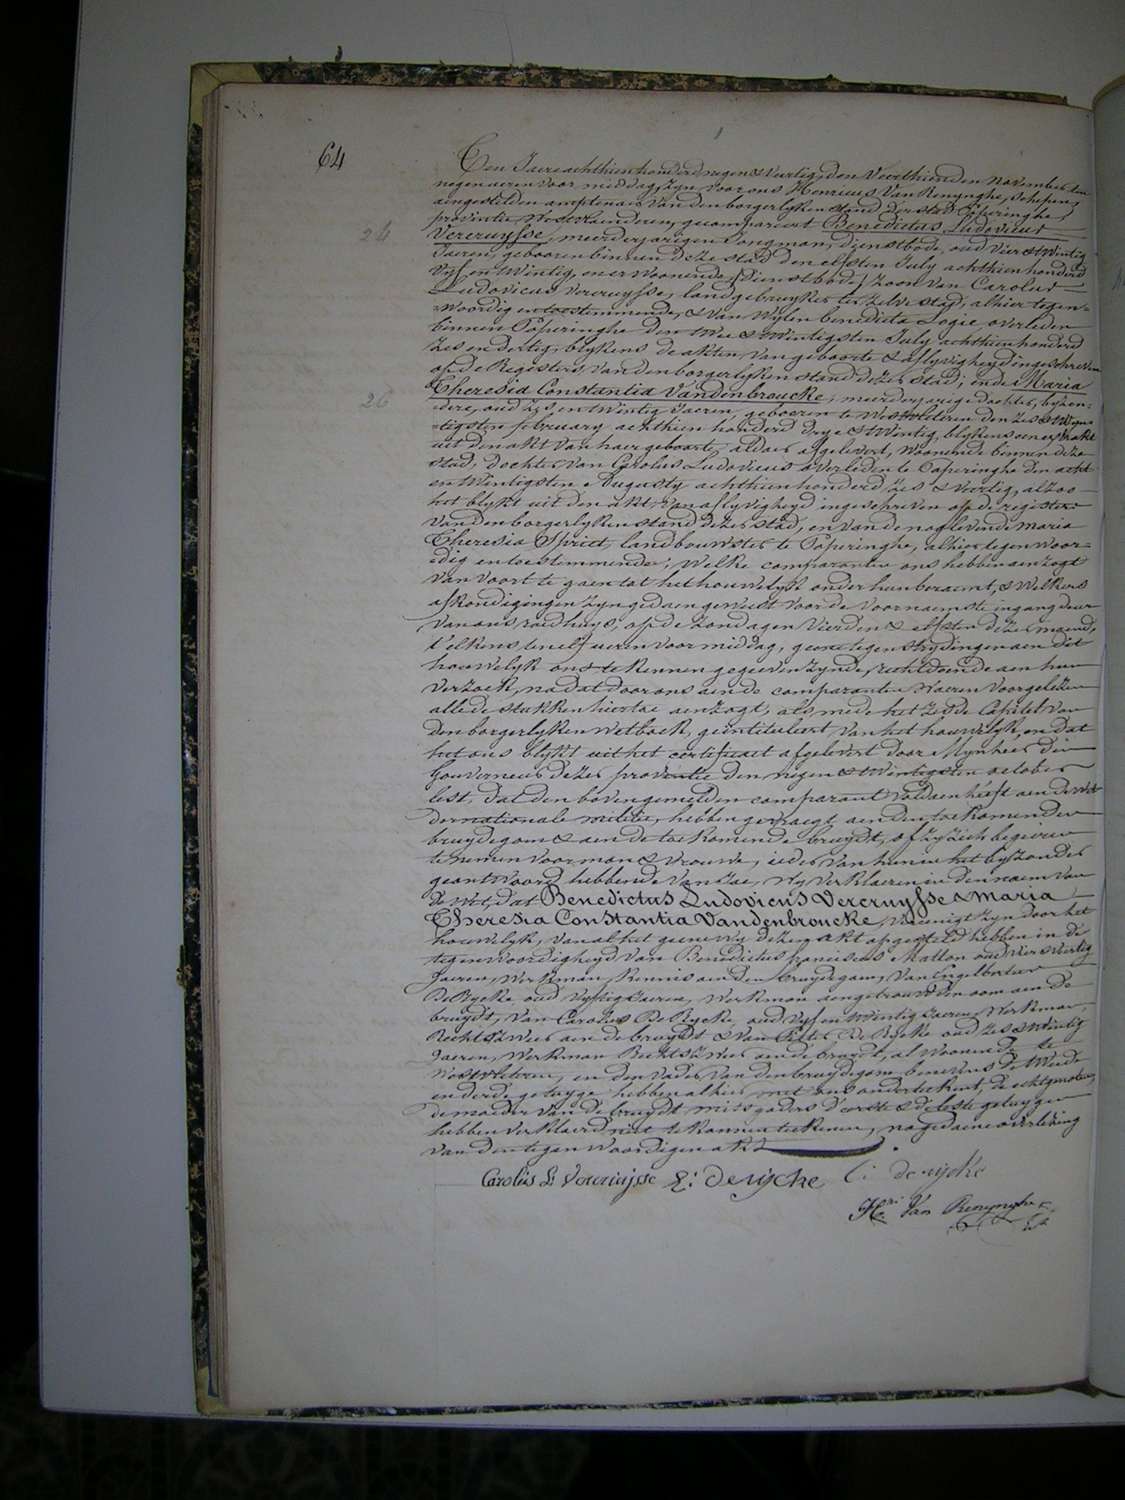 64
Den Jaere achthien honderd negen & veertig, den veerthienden November ten
negen ueren voor middag, zyn voor ons Henricus Van Renynghe, schepen,
aengestelden amptenaer van den borgerlyken stand der stad Poperinghe,
provintie Westvlaenderen, gecompareert Benedictus Ludovicus
24
Vercruysse, meerderjarigen Jongman, dienstbode, oud vier & twintig
Jaeren, gebooren binnen deze stad den elfsten July achthien honderd
vyf en twintig, en er woonende, (dienstbode) zoon van Carolus
Ludovicus Vercruysse, landgebruyker ter zelve stad, alhier tegen-
woordig en toestemmende, & van wylen benedicta Logie overleden
binnen Poperinghe den twee & twintigsten July achthien honderd
zes en dertig, blykens de akten van geboorte & aflyvigheyd ingeschreven
op de Registers van den borgerlyken stand dezer stad; ende Maria
26
Theresia Constantia Vandenbroucke, meerderjarige dochter, byzon-
dere, oud zes en twintig Jaeren, geboren te Westvleteren den zes & twin-
tigsten february achthien honderd drye & twintig, blykens een extrakt
uit den akt van haer geboorte, aldaer afgelevert, woonende binnen deze
stad, dochter van Carolus Ludovicus overleden te Poperinghe den acht
en twintigsten Augusty achthien honderd zes & veertig, alzoo
het blykt uit den akt van aflyvigheyd ingeschreven op de registers
van den borgerlyken stand dezer stad, en van de nog levende maria
Theresia Spriet, landbouwster te Poperinghe, alhier tegenwoor-
dig en toestemmende; welke comparanten ons hebben aenzogt
van voort te gaen tot het houwelyk onder hun beraemt, & welkers
afkondigingen zyn gedaen geweest voor de voornaemste ingang deur
van ons raedhuys, op de zondagen vierden & elfsten dezer maend,
t'elkens ten elf ueren voor middag, geene tegenstrydingen aen dit
houwelyk ons te kennen gegeven zynde, rechtdoende aen hun
verzoek, na dat door ons aen de comparanten waeren voorgelezen
alle de stukken hiertoe aenzogt, als mede het zesde Capitel van
den borgerlyken wetboek, geintituleert, van het houwelyk, en dat
het ons blykt uit het certificaet afgelevert door Mynheer den
Gouverneur dezer provintie den negen & twintigsten october
lest, dat den bovengemelden comparant voldaen heeft aen de wet
der nationale militie, hebben gevraegt aen den toekomenden
bruydegom & aen de toekomende bruydt, of zy zich begeren
te nemen voor man & vrouwe, ieder van hun in het byzonder
geantwoord hebbende van Jae, Wy verklaeren in den naem van
de Wet, dat Benedictus Ludovicus Vercruysse & Maria
Theresia Constantia Vandenbroucke, vereenigt zyn door het
houwelyk, van al het geene wy dezen akt opgesteld hebben in de
tegenwoordigheyd van Benedictus franciscus Matton oud vier & veertig
Jaeren, werkman, kennis aen den bruydegom, van Engelbertus
De Rycke, oud vyftig Jaeren, werkman aengetrouwden oom aen de
bruydt, van Carolus De Rycke, oud vyf en twintig Jaeren, werkman,
Rechtszweer aen de bruydt & van Pieter De Rycke oud zes & twintig
Jaeren, werkman Rechtszweer aen de bruydt, al woonende te
Westvleteren, en den vader van den bruydegom benevens de tweede
en derde getuyge hebben alhier met ons onderteekent, de echtgenoten,
de moeder van de bruydt mitsgaders d'eerste & de leste getuygen
hebben verklaerd niet te konnen teekenen, na gedaene overlezing
van den tegenwoordigen akt
Carolus L: Vercruysse E: Derycke C: derycke
Hri Van Renynghe